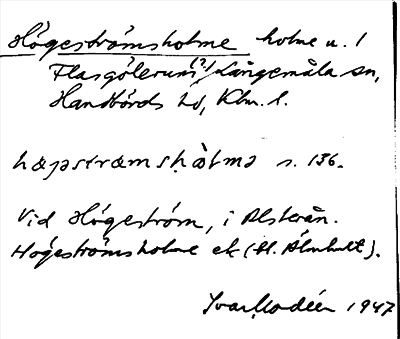 Högeströmsholme holme u. 1
Flasgölerum (?) Långemåla sn,
Handbörds hd, Klm. l.
høgstrømshòlmə s. 136.
Vid Högeström, i Alsterån.
Högeströmsholme ek (H. Älmhult).
Ivar Modéer 1947